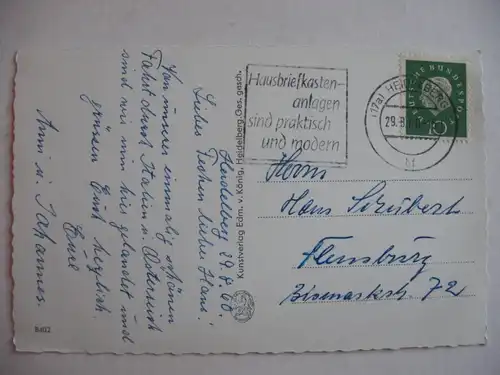 Heidelberg 29.8.60.
Lieber Hans!
Von unserer einmalig schönen
Fahrt durch Italien u. Österreich
sind wir nun hier gelandet und
grüssen Euch herzlich
Eure
Anni u. Johannes.
8402
Kunstverlag Edm. v. König, Heidelberg. Ges. gesch.
Hausbriefkasten-
anlagen
sind praktisch
und modern
(17a) HEIDELBERG
29.8.
DEUTSCHE BUNDESPOST
10
Herrn
Hans Schubert
Flensburg
Bismarckstr. 72